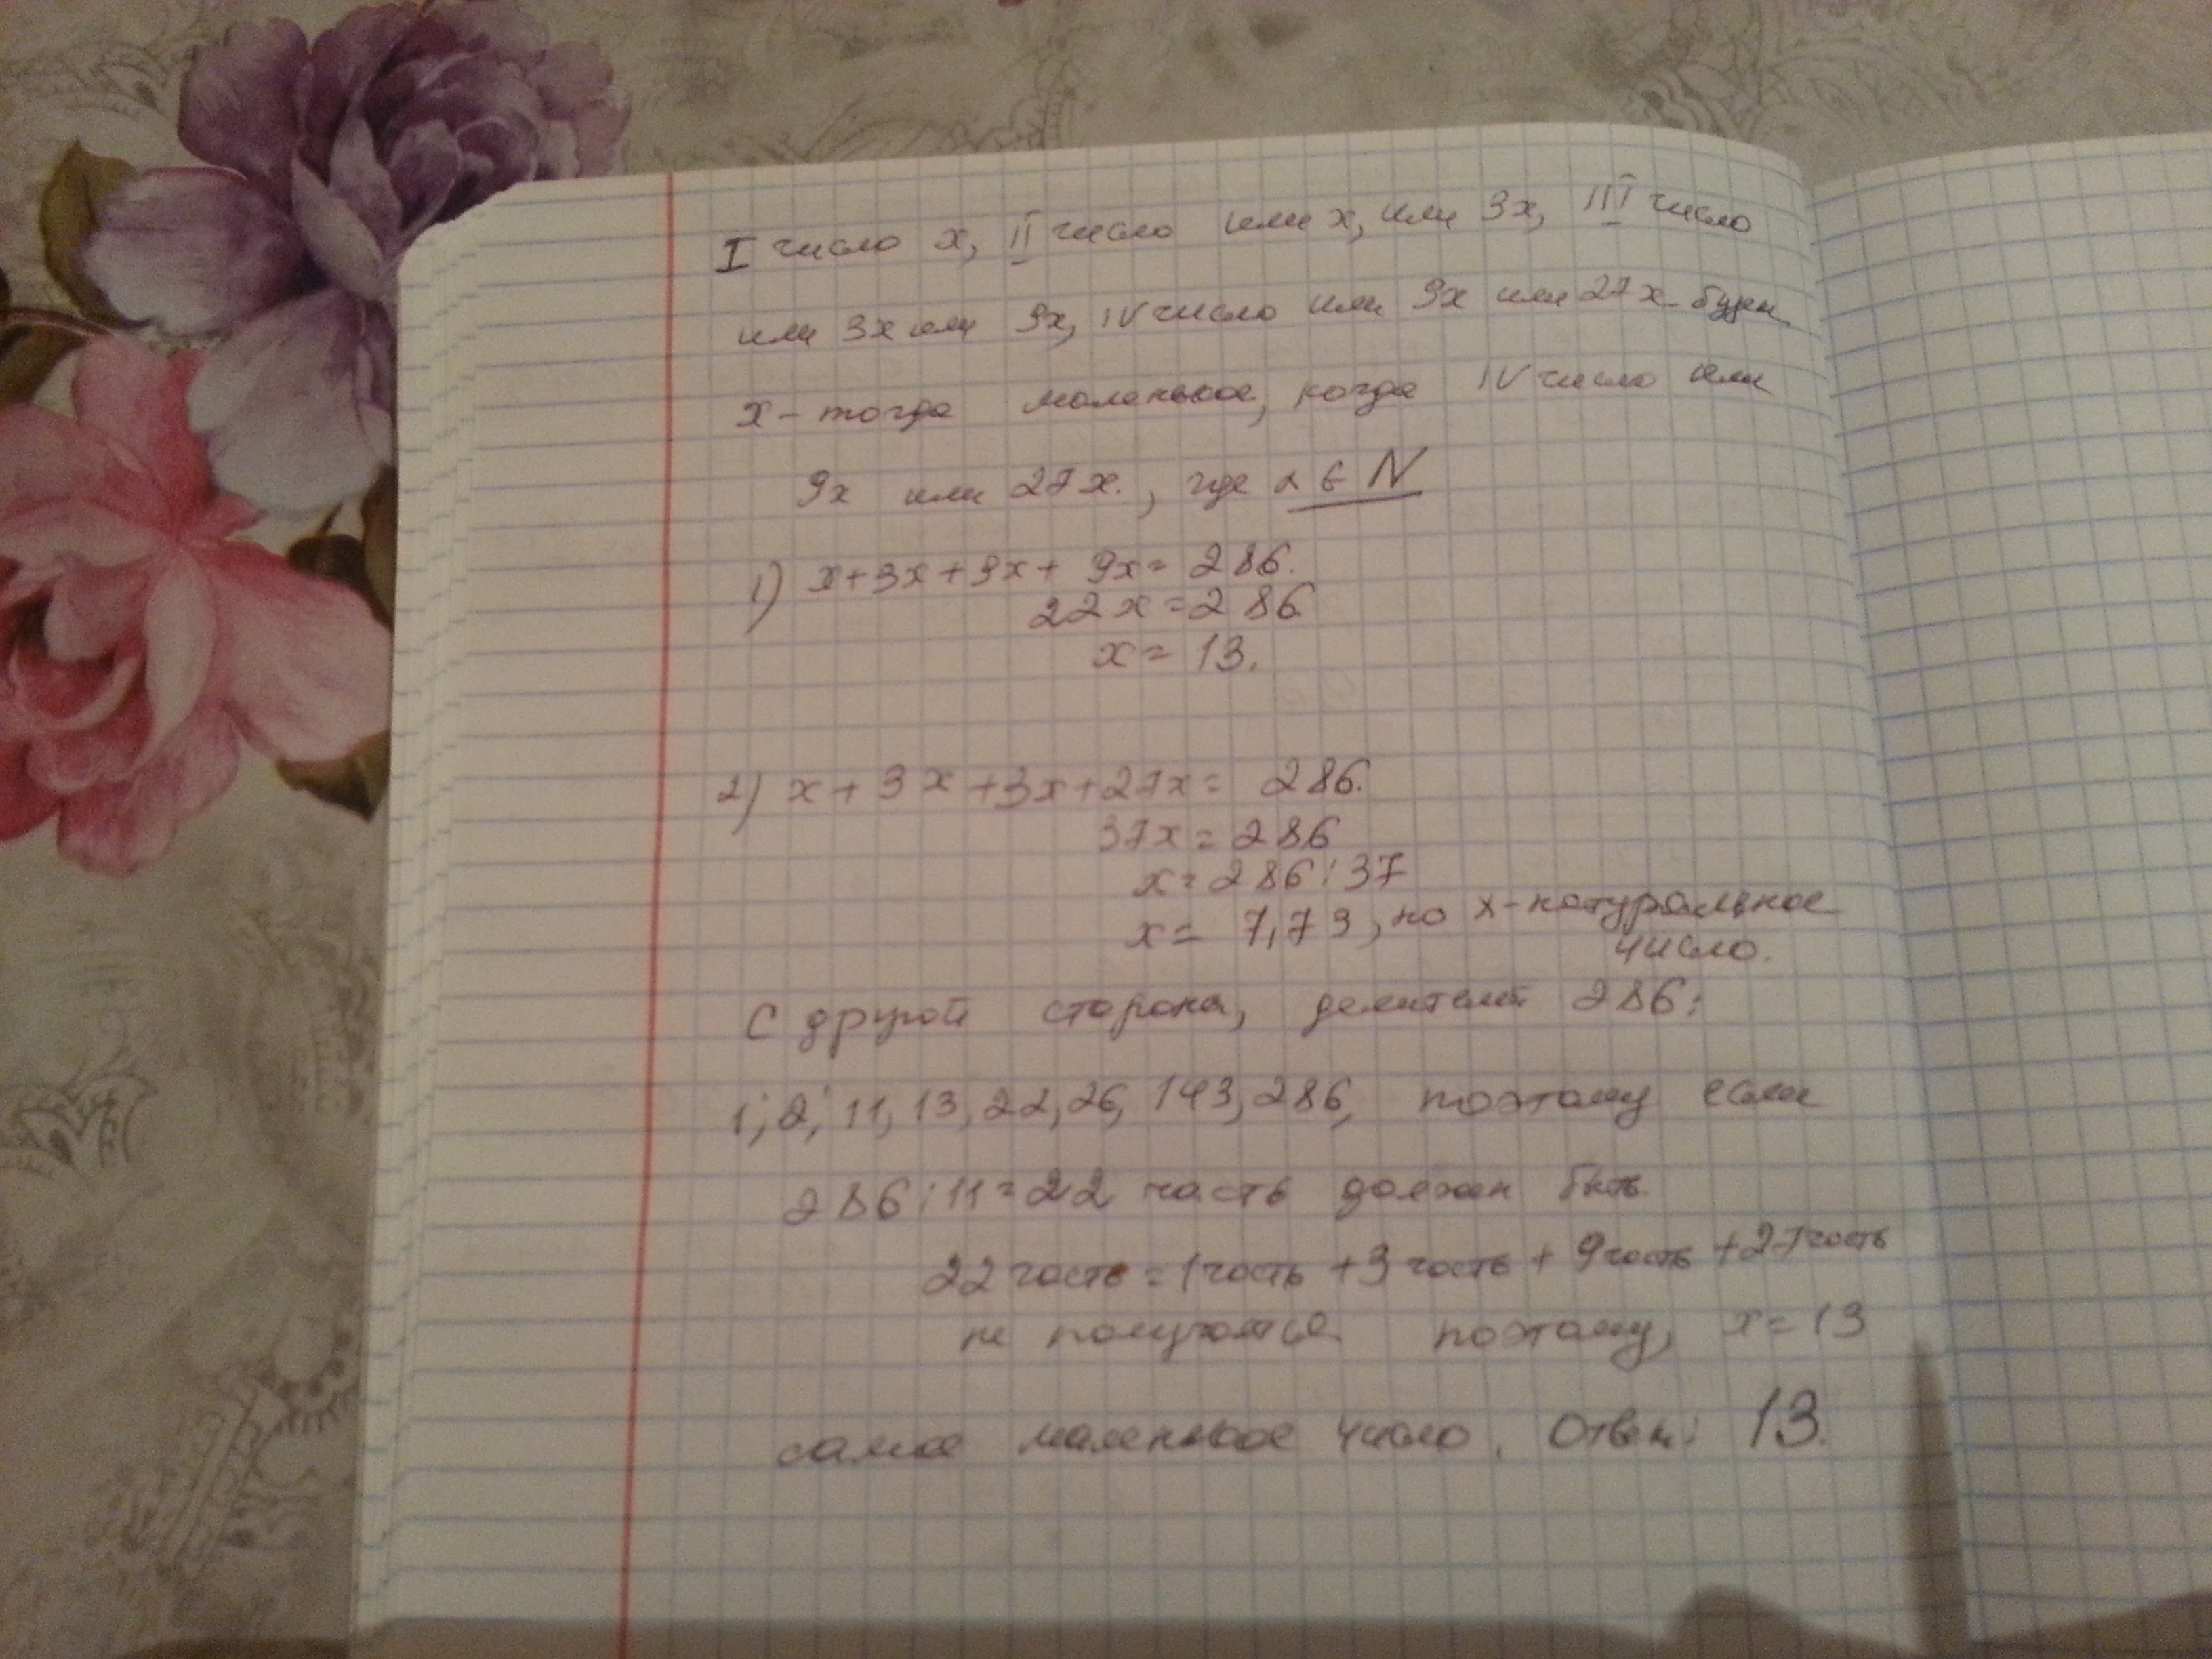 I число x, II число или x, или 3x, III число
или 3x или 9x, IV число или 9x или 27x. будет
x - тогда маленькое, когда IV число или
9x или 27x., где x ∈ N
1) x+3x+9x+ 9x= 286.
22x=286
x= 13.
2) x+3x+3x+27x= 286.
37x=286
x=286:37
x= 7,73, но x-натуральное
число.
С другой стороны, делителей 286:
1; 2; 11, 13, 22, 26, 143, 286, поэтому если
286:11=22 часть должен быть.
22 часть=1часть +3 часть + 9часть +27часть
не получится поэтому, x=13
самое маленькое число. Ответ: 13.